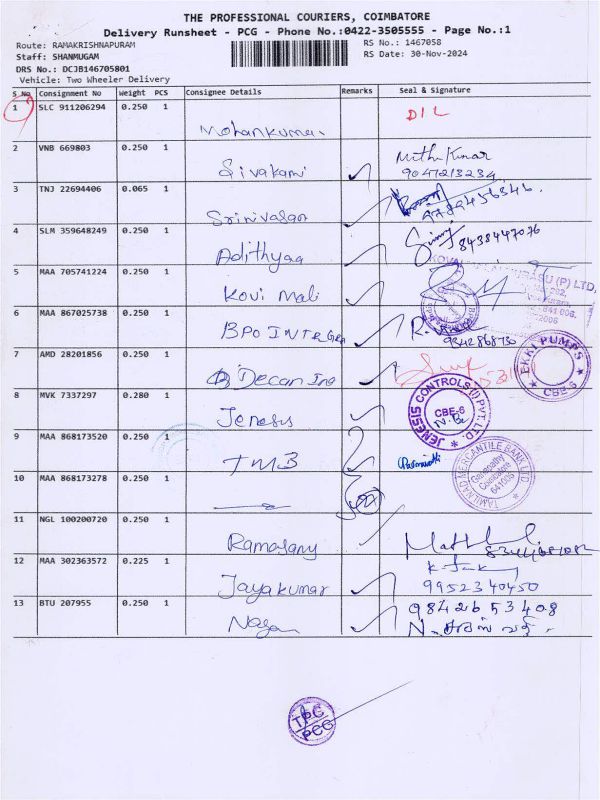 THE PROFESSIONAL COURIERS, COIMBATORE
Delivery Runsheet - PCG - Phone No.:0422-3505555 - Page No.:1
Route: RAMAKRISHNAPURAM RS No.: 1467058
Staff: SHANMUGAM RS Date: 30-Nov-2024
DRS No.: DCJB146705801
Vehicle: Two Wheeler Delivery
S No Consignment No Weight PCS Consignee Details Remarks Seal & Signature
1 SLC 911206294 0.250 1 Mohankumar DIL
2 VNB 669803 0.250 1 Sivakami Muthu Kumar
9047213234
3 TNJ 22694406 0.065 1 Srinivasan 9789456346
4 SLM 359648249 0.250 1 Adithyaa 8438447076
5 MAA 705741224 0.250 1 Kovi Mali
6 MAA 867025738 0.250 1 BPO INTRGRA
9342868730
7 AMD 28201856 0.250 1 Decan Ind
EKKI PUMPS CBE-6
8 MVK 7337297 0.280 1 Jenesis
JENESIS CONTROLS (I) PVT. LTD. CBE-6
9 MAA 868173520 0.250 1 TMB
TAMILNAD MERCANTILE BANK LTD Ganapathy Coimbatore 641006
10 MAA 868173278 0.250 1
11 NGL 100200720 0.250 1 Ramasany
12 MAA 302363572 0.225 1 Jayakumar
9952340450
13 BTU 207955 0.250 1 Nagan 9842653408
TPC
PCG